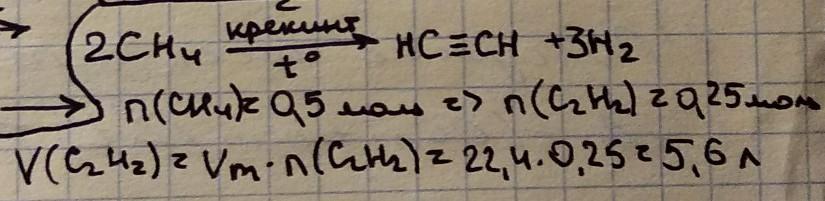 2CH₄ крекинг t° → HC≡CH + 3H₂
n(CH₄) = 0,5 моль => n(C₂H₂) = 0,25 моль
V(C₂H₂) = Vm · n(C₂H₂) = 22,4 · 0,25 = 5,6 л